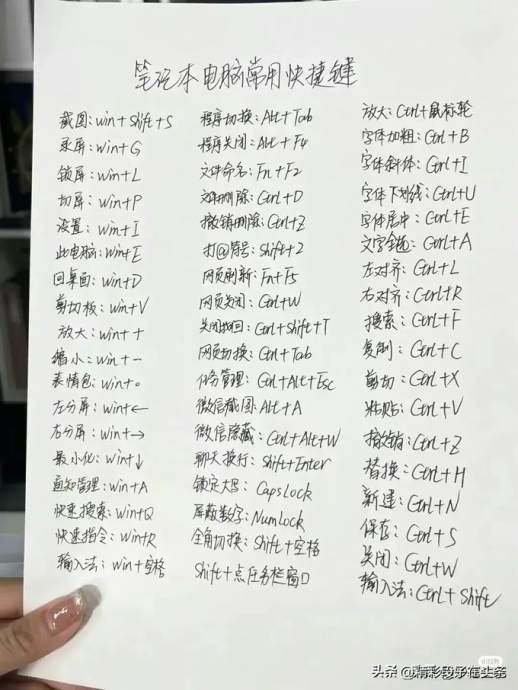 笔记本电脑常用快捷键
截图:win+shift+S
录屏:win+G
锁屏:win+L
切屏:win+P
设置:win+I
此电脑:win+E
回桌面:win+D
剪切板:win+V
放大:win++
缩小:win+-
表情包:win+。
左分屏:win+←
右分屏:win+→
最小化:win+↓
通知管理:win+A
快速搜索:win+Q
快速指令:win+R
输入法:win+空格
程序切换:Alt+Tab
程序关闭:Alt+F4
文件命名:Fn+F2
文件删除:Ctrl+D
撤销删除:Ctrl+Z
打@符号:Shift+2
网页刷新:Fn+F5
网页关闭:Ctrl+W
关闭找回:Ctrl+Shift+T
网页切换:Ctrl+Tab
任务管理:Ctrl+Alt+Esc
微信截图:Alt+A
微信隐藏:Ctrl+Alt+W
聊天换行:Shift+Enter
锁定大写:CapsLock
屏蔽数字:NumLock
全角切换:Shift+空格
Shift+点任务栏窗口
放大:Ctrl+鼠标轮
字体加粗:Ctrl+B
字体斜体:Ctrl+I
字体下划线:Ctrl+U
字体居中:Ctrl+E
文字全选:Ctrl+A
左对齐:Ctrl+L
右对齐:Ctrl+R
搜索:Ctrl+F
复制:Ctrl+C
剪切:Ctrl+X
粘贴:Ctrl+V
撤销:Ctrl+Z
替换:Ctrl+H
新建:Ctrl+N
保存:Ctrl+S
关闭:Ctrl+W
输入法:Ctrl+Shift
小红书
头条@精彩段子在头条